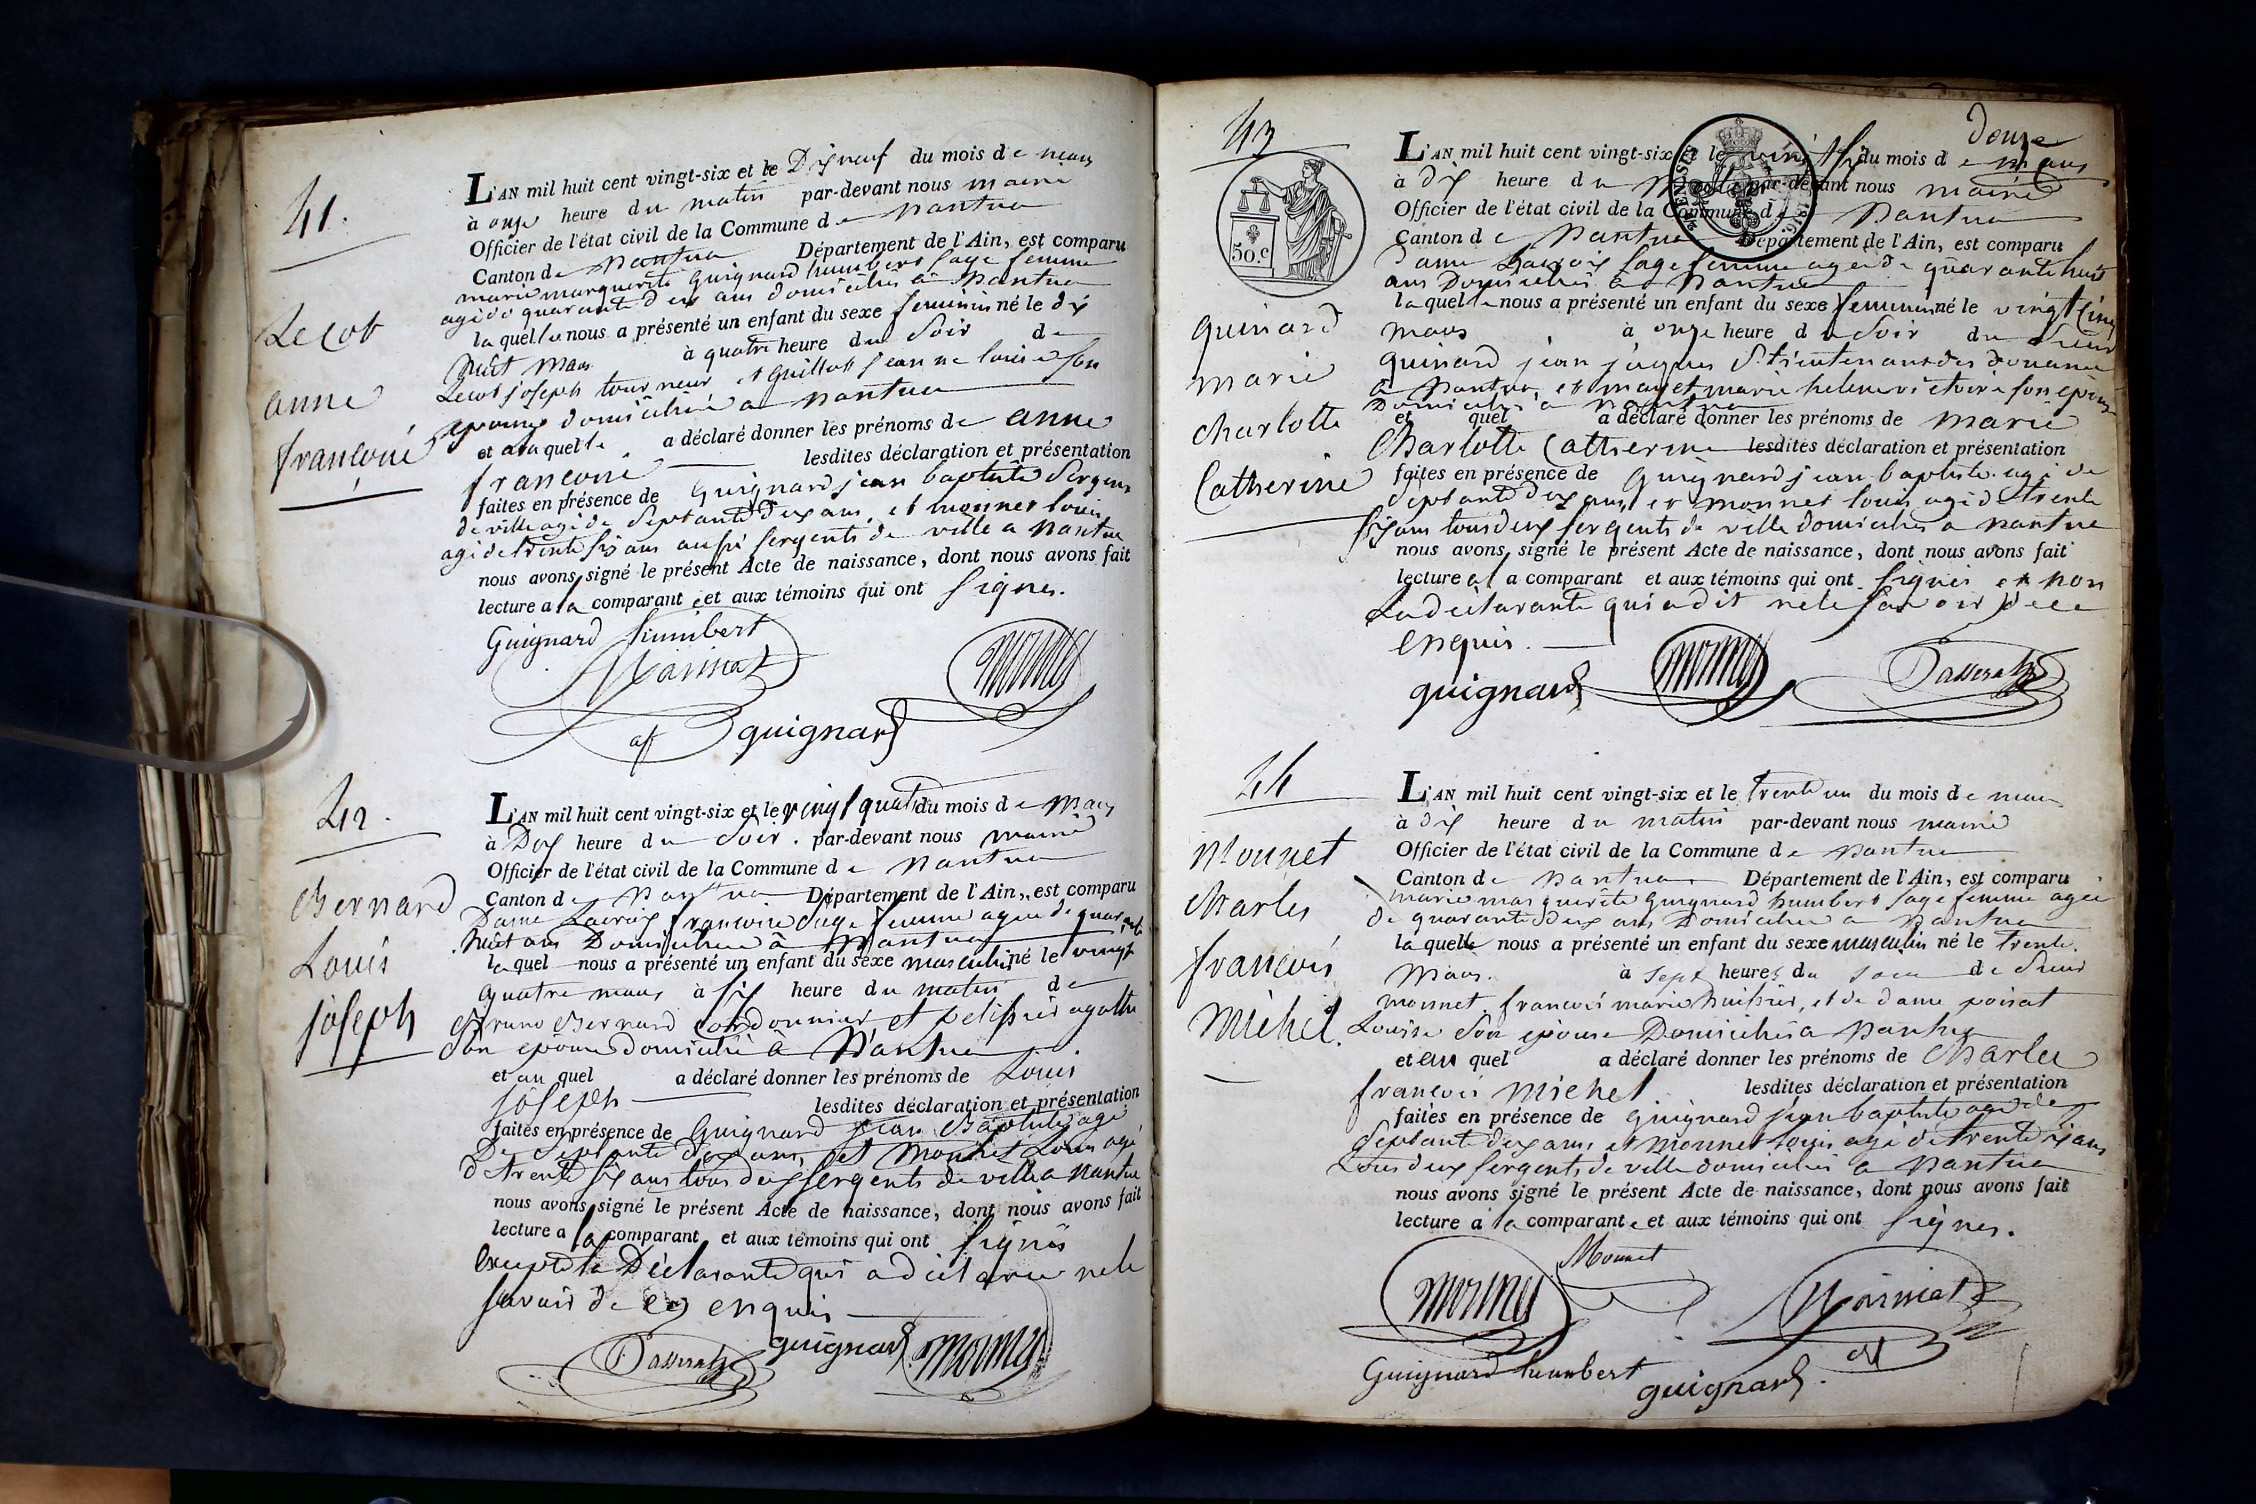 41.
Lecot
anne
françoise
L'AN mil huit cent vingt-six et le Dixneuf du mois de mars
à onze heure du matin par-devant nous maire
Officier de l'état civil de la Commune de Nantua
Canton de Nantua Département de l'Ain, est comparu
marie marguerite Guignard humbert sage femme
agée de quarante deux ans domiciliée à Nantua
laquelle nous a présenté un enfant du sexe feminin né le dix
huit mars à quatre heure du Soir de
Lecot joseph tourneur et Guillot jeanne louise son
epouse domiciliés a Nantua
et a laquelle a déclaré donner les prénoms de anne
françoise lesdites déclaration et présentation
faites en présence de Guignard jean baptiste Sergent
de ville agé de Septante deux ans, et monnet louis
agé de trente six ans aussi sergents de ville a Nantua
nous avons signé le présent Acte de naissance, dont nous avons fait
lecture a la comparante et aux témoins qui ont signes.
Guignard humbert
guignard
42.
Bernard
Louis
joseph
L'AN mil huit cent vingt-six et le vingt quatre du mois de Mars
à Dix heure du Soir. par-devant nous maire
Officier de l'état civil de la Commune de Nantua
Canton de Nantua Département de l'Ain, est comparu
Dame Lacroix francoise Sage femme agée de quarante
huit ans Domiciliée à Nantua
laquel nous a présenté un enfant du sexe masculin né le vingt
quatre mars à six heure du matin de
Bruno Bernard cordonnier et pelissier agathe
son epouse domicilié à Nantua
et au quel a déclaré donner les prénoms de Louis
joseph lesdites déclaration et présentation
faites en présence de Guignard jean Baptiste agé
De Septante deux ans, et Monnet Louis agé
de trente six ans tous deux sergents de ville a Nantua
nous avons signé le présent Acte de naissance, dont nous avons fait
lecture a la comparant et aux témoins qui ont signés
excepté la Déclarante qui a déclaré ne le
savoir de ce enquis
guignard
douze
43
50.c
1816.
quinard
marie
charlotte
Catherine
L'AN mil huit cent vingt-six et le vingt six du mois de mars
à dix heure du matin par-devant nous maire
Officier de l'état civil de la Commune de Nantua
Canton de Nantua Département de l'Ain, est comparu
Dame Lacroix sage femme agée de quarante huit
ans Domiciliée à Nantua
laquelle nous a présenté un enfant du sexe feminin né le vingt Cinq
mars à onze heure du Soir du Sieur
quinard jean jacques St lieutenant des douanes
a Nantua et mayet marie helene victoire son epouse
Domiciliés a Nantua
et quel a déclaré donner les prénoms de marie
Charlotte Catherine lesdites déclaration et présentation
faites en présence de Guignard jean baptiste agé de
Septante deux ans, et monnet louis agé de trente
six ans tous deux sergents de ville domiciliés a Nantua
nous avons signé le présent Acte de naissance, dont nous avons fait
lecture a la comparant et aux témoins qui ont signés et non
La déclarante qui a dit ne le savoir de ce
enquis.
guignard
44
Mounet
Charles
françois
Michel.
L'AN mil huit cent vingt-six et le trente un du mois de mars
à dix heure du matin par-devant nous maire
Officier de l'état civil de la Commune de Nantua
Canton de Nantua Département de l'Ain, est comparu
marie marguerite Guignard humbert sage femme agée
de quarante deux ans Domiciliée a Nantua
laquelle nous a présenté un enfant du sexe masculin né le trente
Mars. à sept heures du soir de Sieur
mounet françois marie huissier, et de dame poisat
Louise son epouse Domiciliés a Nantua
et au quel a déclaré donner les prénoms de Charles
françois Michel lesdites déclaration et présentation
faites en présence de Guignard jean baptiste agé de
Septante deux ans, et Monnet Louis agé de trente six ans
tous deux sergents de ville domiciliés a Nantua
nous avons signé le présent Acte de naissance, dont nous avons fait
lecture a la comparante et aux témoins qui ont signes.
Mounet
Guignard humbert
guignard